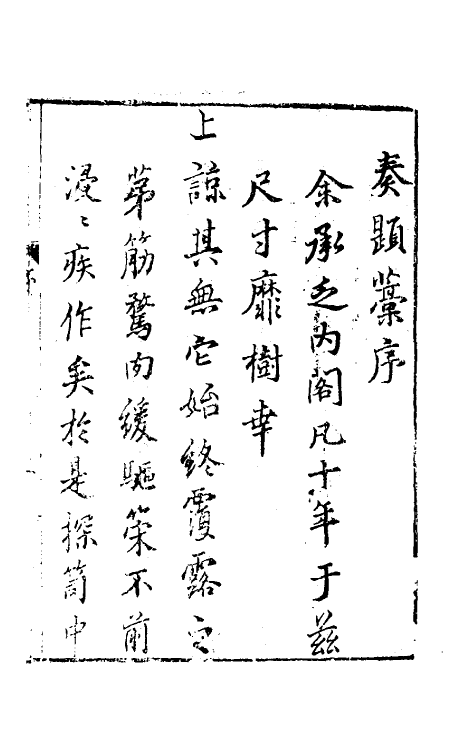 奏題藁序
余承乏內閣凡十年于茲
尺寸靡樹幸
上諒其無它始終覆露之
第筋駑肉緩驅策不前
浸〻疾作矣於是探笥中